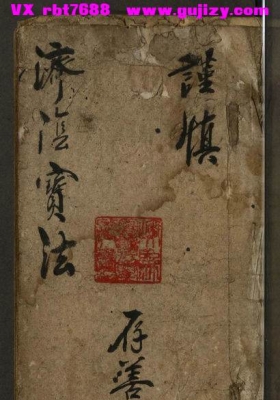 VX rbt7688 www.gujizy.com
謹慎
濟陰寶法
存善